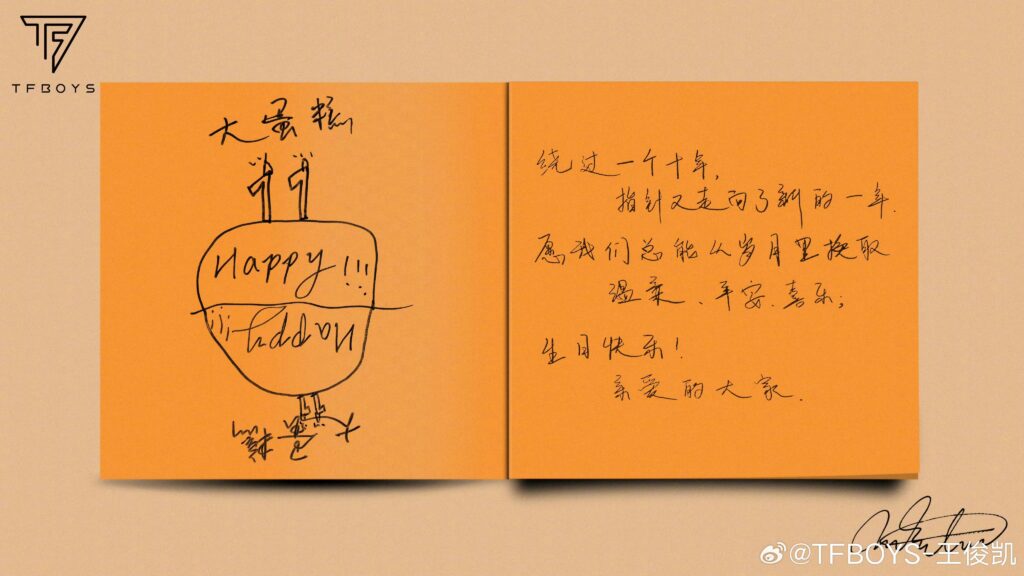 TFBOYS
大蛋糕
11
Happy!!!
Happy!!!
11
大蛋糕
绕过一个十年,
指针又走向了新的一年.
愿我们总能从岁月里换取
温柔、平安、喜乐;
生日快乐!
亲爱的大家.
@TFBOYS-王俊凯